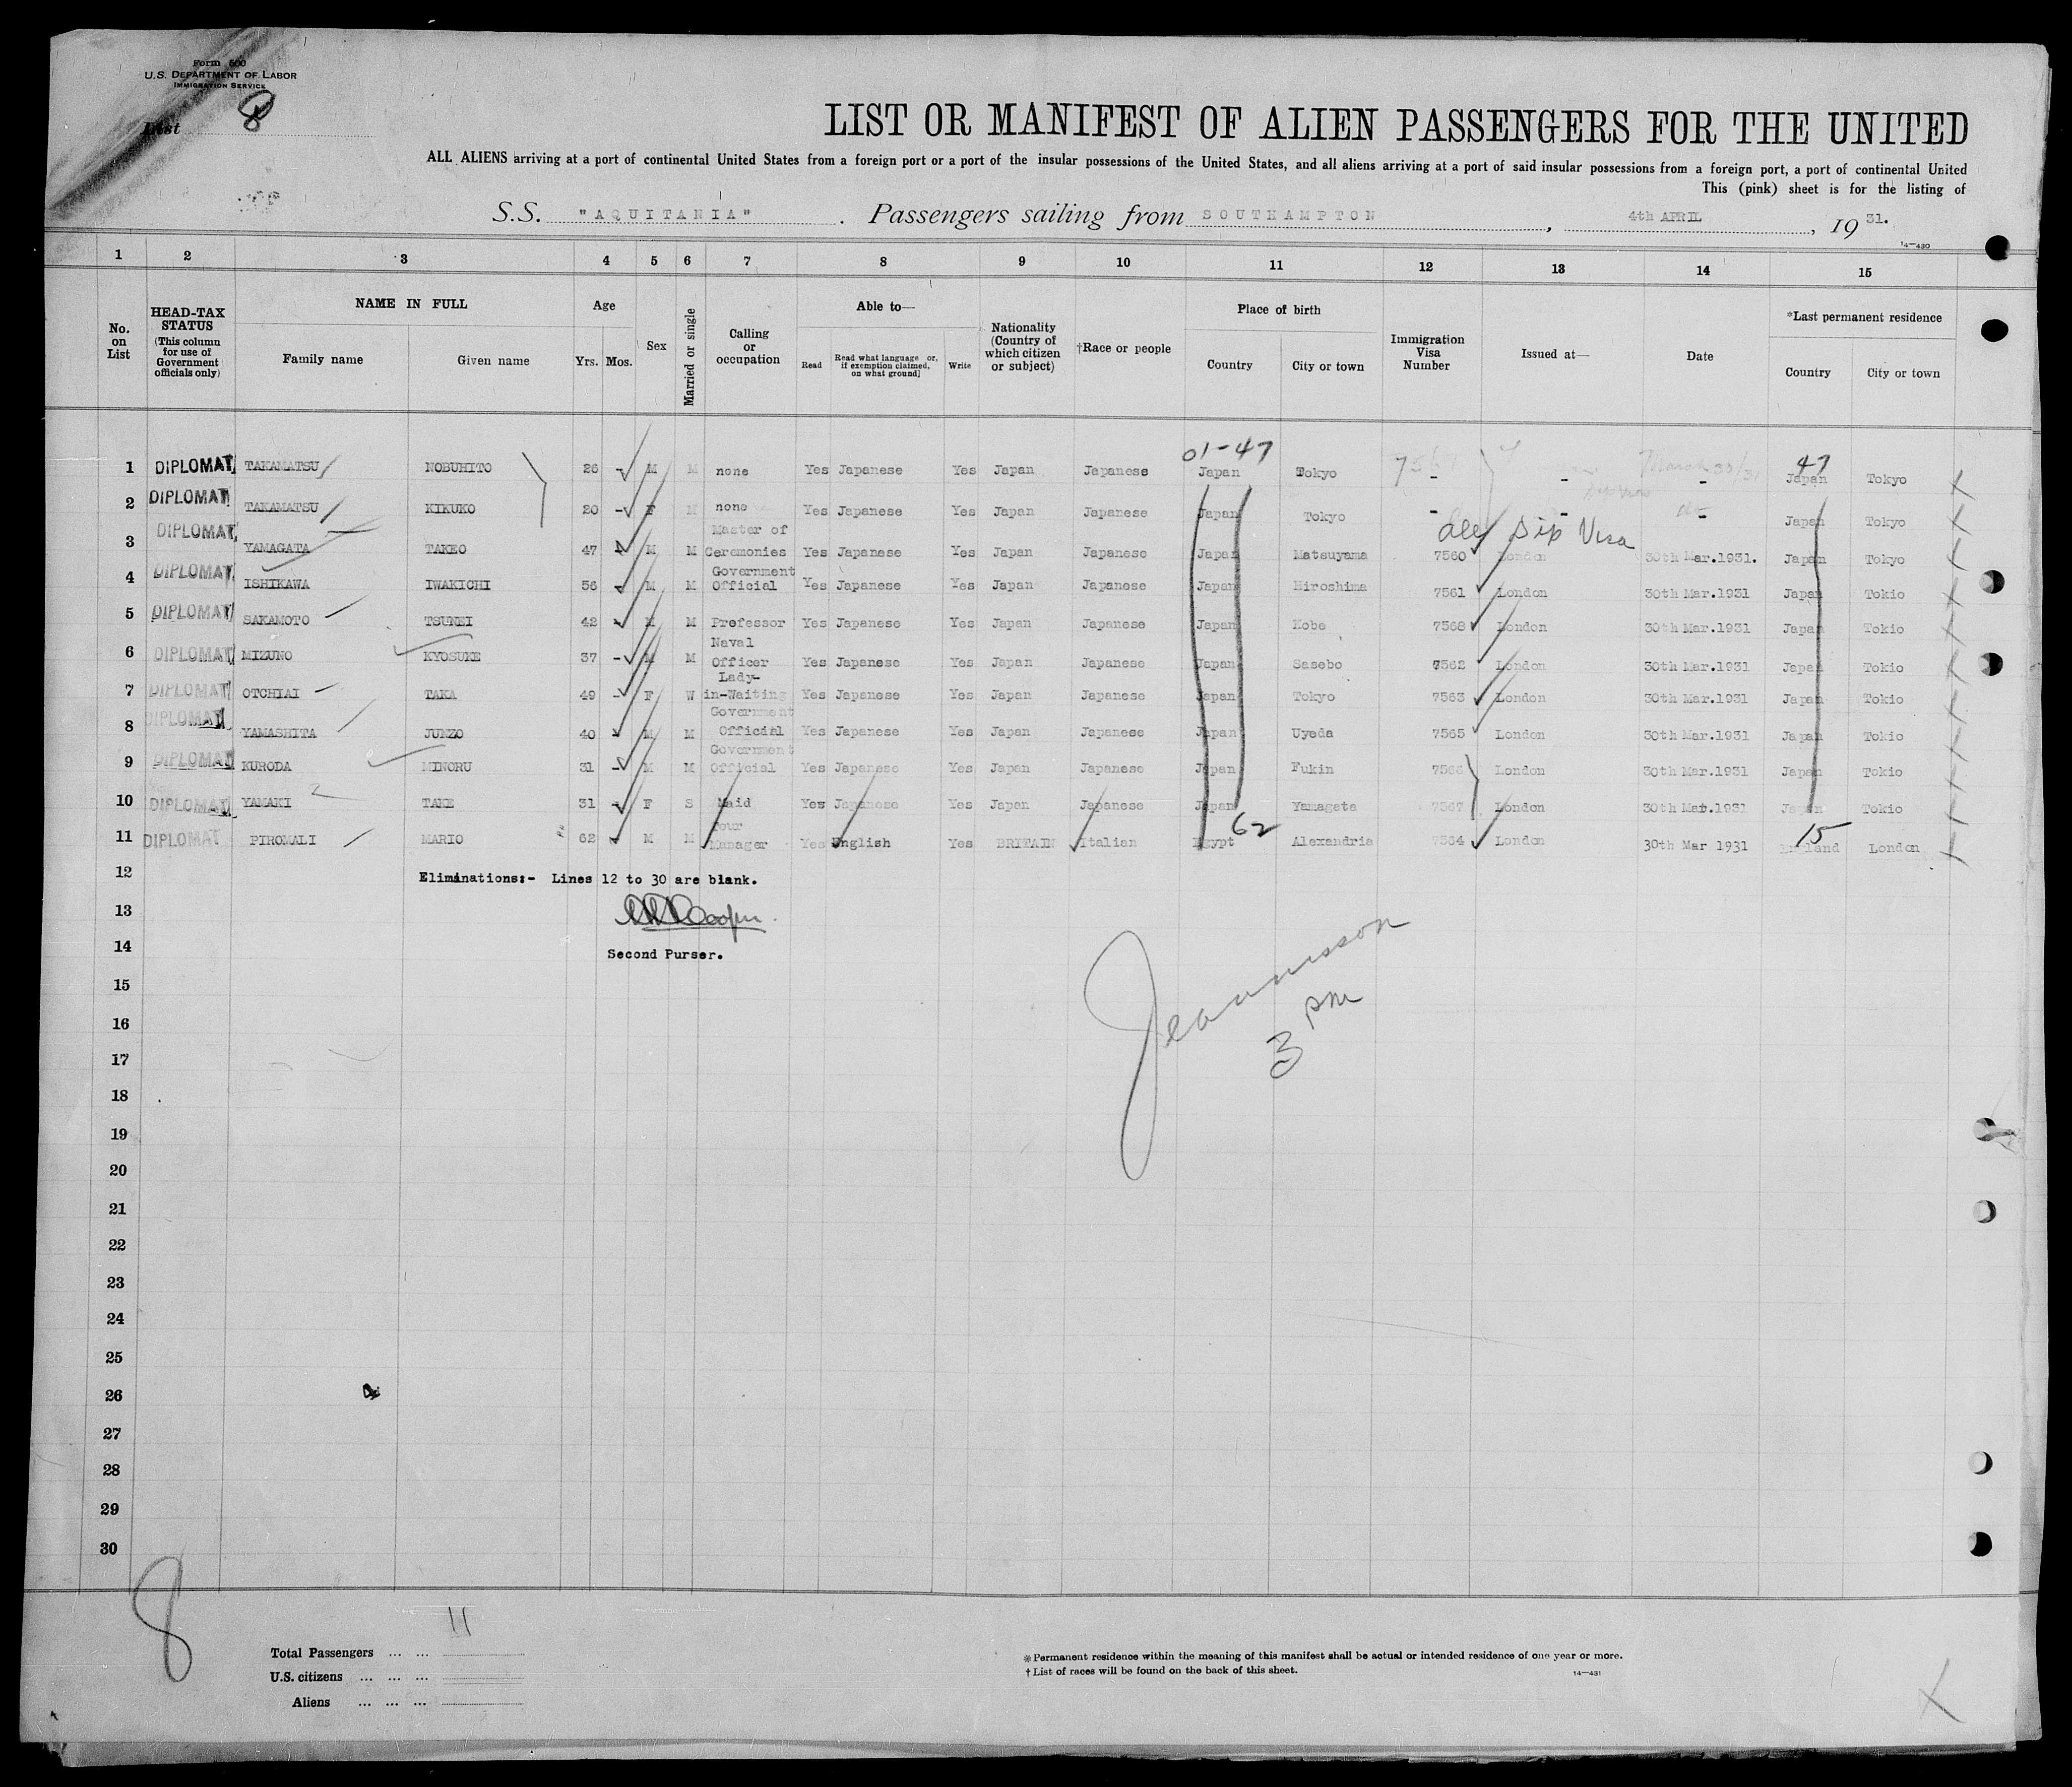 Form 500
U.S. DEPARTMENT OF LABOR
IMMIGRATION SERVICE
List 8
LIST OR MANIFEST OF ALIEN PASSENGERS FOR THE UNITED
ALL ALIENS arriving at a port of continental United States from a foreign port or a port of the insular possessions of the United States, and all aliens arriving at a port of said insular possessions from a foreign port, a port of continental United
This (pink) sheet is for the listing of
S.S. "AQUITANIA". Passengers sailing from SOUTHAMPTON, 4th APRIL, 1931.
14—430
1 2 3 4 5 6 7 8 9 10 11 12 13 14 15
No. on List
HEAD-TAX STATUS (This column for use of Government officials only)
NAME IN FULL
Family name Given name
Age
Yrs. Mos.
Sex
Married or single
Calling or occupation
Able to—
Read
Read what language or, if exemption claimed, on what ground]
Write
Nationality (Country of which citizen or subject)
†Race or people
Place of birth
Country City or town
Immigration Visa Number
Issued at—
Date
*Last permanent residence
Country City or town
01-47
47
1 DIPLOMAT TAKAMATSU NOBUHITO 26 - M M none Yes Japanese Yes Japan Japanese Japan Tokyo - - - Japan Tokyo
2 DIPLOMAT TAKAMATSU KIKUKO 20 - F M none Yes Japanese Yes Japan Japanese Japan Tokyo - - Japan Tokyo
all Dip Visa
3 DIPLOMAT YAMAGATA TAKEO 47 M M Master of Ceremonies Yes Japanese Yes Japan Japanese Japan Matsuyama 7560 London 30th Mar.1931. Japan Tokyo
4 DIPLOMAT ISHIKAWA IWAKICHI 56 - M M Government Official Yes Japanese Yes Japan Japanese Japan Hiroshima 7561 London 30th Mar.1931 Japan Tokio
5 DIPLOMAT SAKAMOTO TSUNEI 42 - M M Professor Yes Japanese Yes Japan Japanese Japan Kobe 7568 London 30th Mar.1931 Japan Tokio
6 DIPLOMAT MIZUNO KYOSUKE 37 - M M Naval Officer Yes Japanese Yes Japan Japanese Japan Sasebo 7562 London 30th Mar.1931 Japan Tokio
7 DIPLOMAT OTCHIAI TAKA 49 - F W Lady-in-Waiting Yes Japanese Yes Japan Japanese Japan Tokyo 7563 London 30th Mar.1931 Japan Tokio
8 DIPLOMAT YAMASHITA JUNZO 40 - M M Government Official Yes Japanese Yes Japan Japanese Japan Uyeda 7565 London 30th Mar.1931 Japan Tokio
9 DIPLOMAT KURODA MINORU 31 - M M Government Official Yes Japanese Yes Japan Japanese Japan Fukin 7566 London 30th Mar.1931 Japan Tokio
10 DIPLOMAT YAMAKI TAKE 31 - F S Maid Yes Japanese Yes Japan Japanese Japan Yamagata 7567 London 30th Mar.1931 Japan Tokio
62
15
11 DIPLOMAT PIROMALI MARIO 62 - M M Tour Manager Yes English Yes BRITAIN Italian Egypt Alexandria 7564 London 30th Mar 1931 England London
12 Eliminations:- Lines 12 to 30 are blank.
13
14 Second Purser.
15
16
3 pm
17
18
19
20
21
22
23
24
25
26
27
28
29
30
8
11
Total Passengers ... ...
U.S. citizens ... ... ...
Aliens ... ... ...
* Permanent residence within the meaning of this manifest shall be actual or intended residence of one year or more.
† List of races will be found on the back of this sheet.
14—431
X